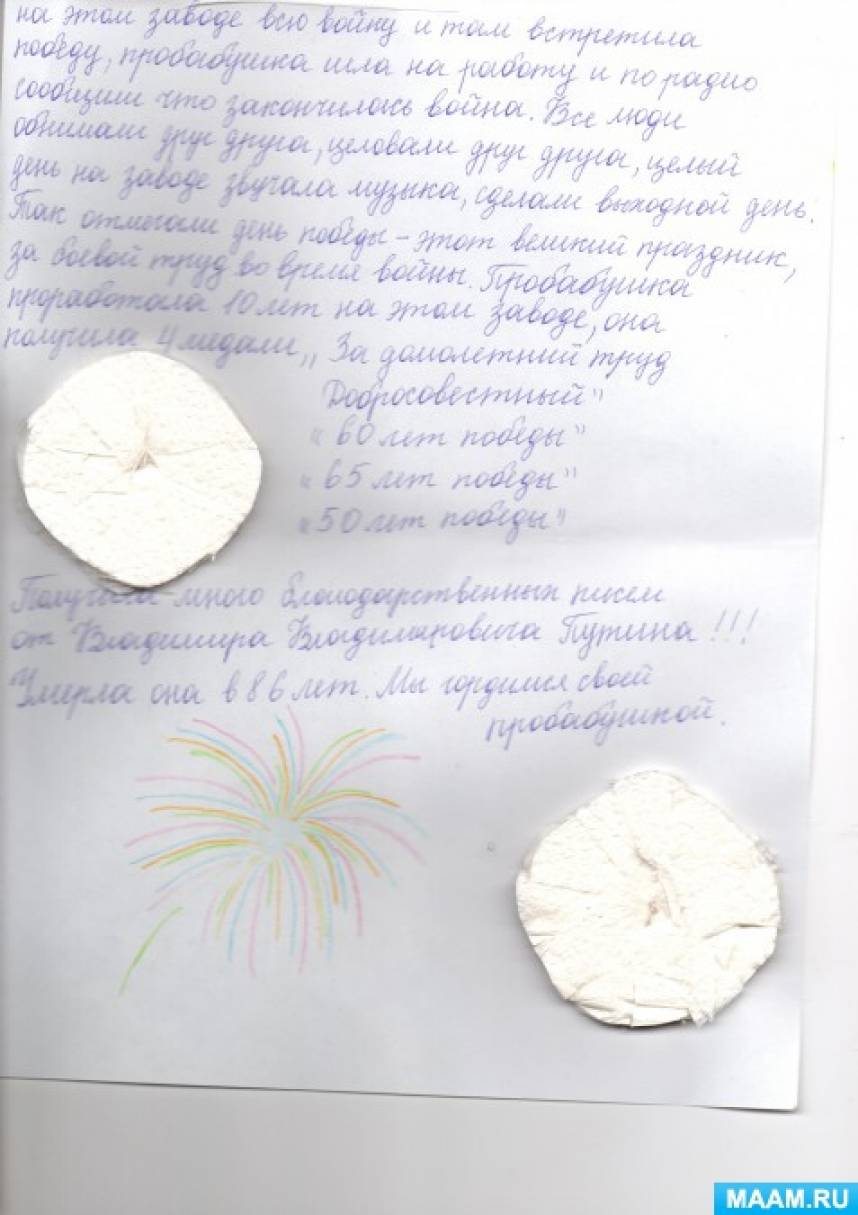 на этом заводе всю войну и там встретила
победу, пробабушка шла на работу и по радио
сообщили что закончилась война. Все люди
обнимали друг друга, целовали друг друга, целый
день на заводе звучала музыка, сделали выходной день.
Так отмечали день победы - этот великий праздник,
за боевой труд во время войны. Пробабушка
проработала 10 лет на этом заводе, она
получила 4 медали „ За домолетний труд
Добросовестный"
„60 лет победы"
„65 лет победы"
„50 лет победы"
Получала много благодарственных писем
от Владимира Владимировича Путина!!!
Умерла она в 86 лет. Мы гордимся своей
пробабушкой.
MAAM.RU